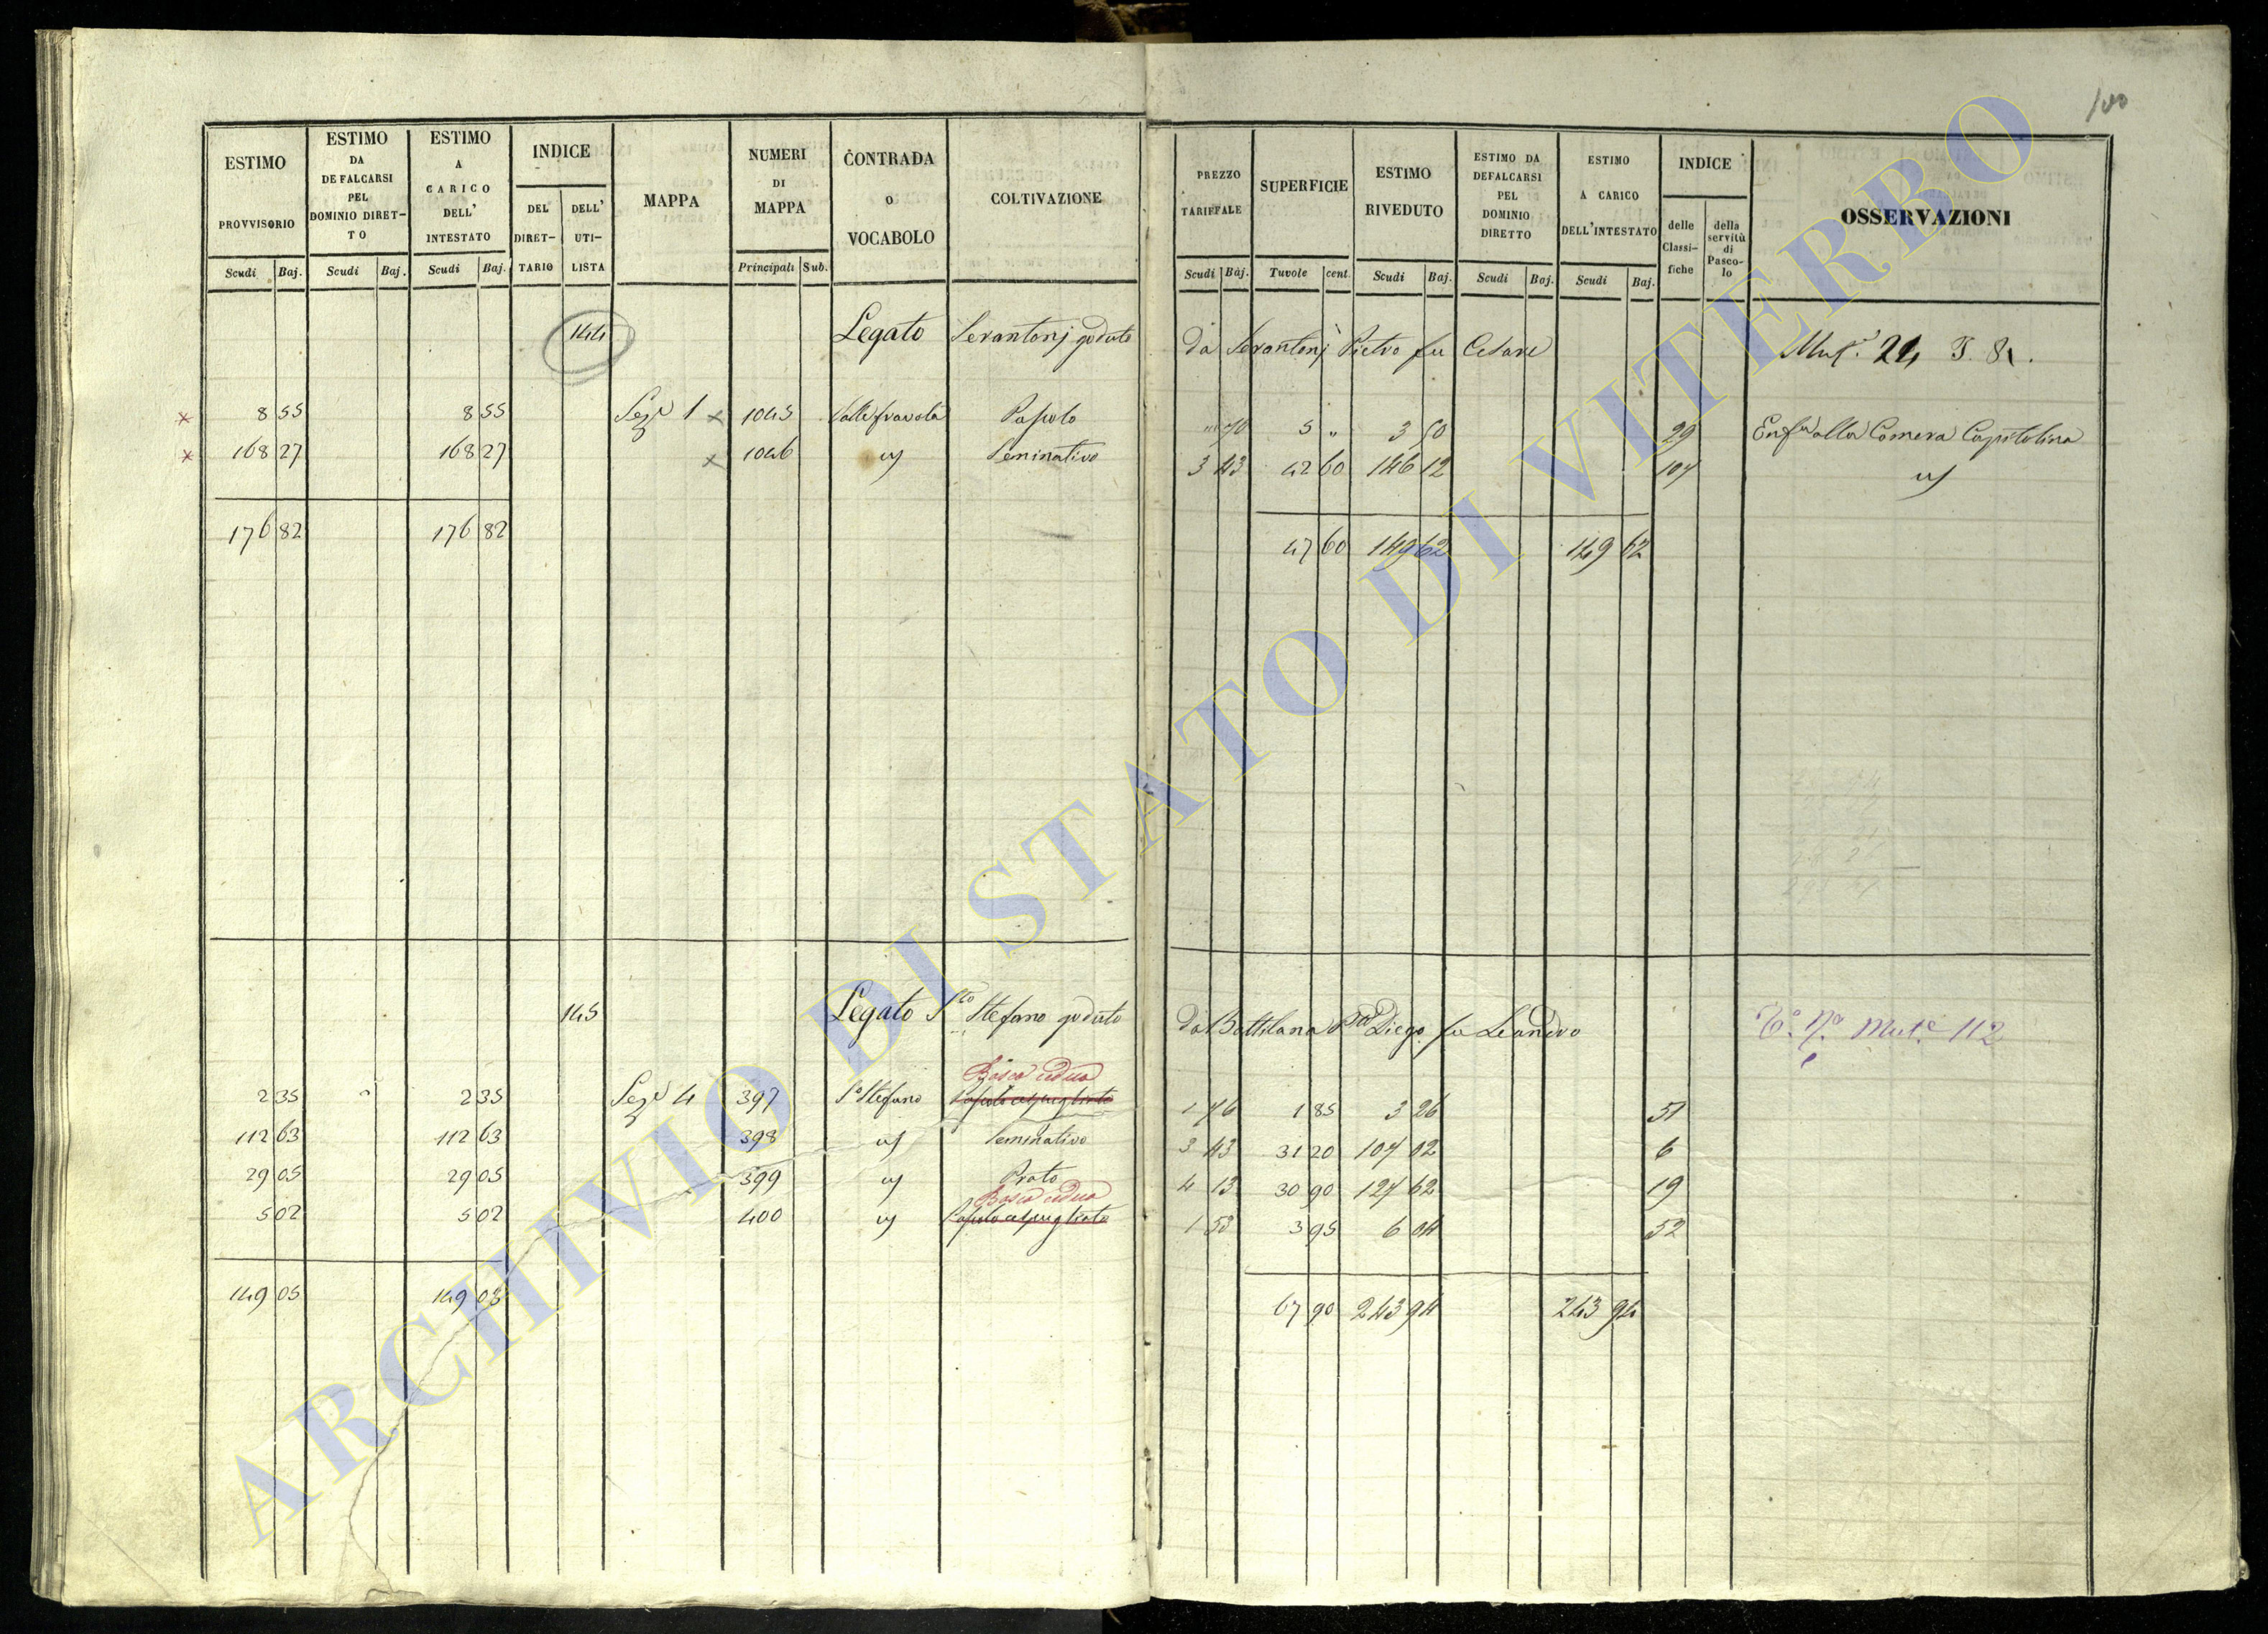 100
ESTIMO PROVVISORIO
ESTIMO DA DEFALCARSI PEL DOMINIO DIRET-TO
ESTIMO A CARICO DELL' INTESTATO
INDICE
DEL DIRET-TARIO
DELL' UTI-LISTA
MAPPA
NUMERI DI MAPPA
CONTRADA O VOCABOLO
COLTIVAZIONE
PREZZO TARIFFALE
SUPERFICIE
ESTIMO RIVEDUTO
ESTIMO DA DEFALCARSI PEL DOMINIO DIRETTO
ESTIMO A CARICO DELL'INTESTATO
INDICE
delle Classi-fiche
della servitù di Pasco-lo
OSSERVAZIONI
Scudi Baj. Scudi Baj. Scudi Baj. Principali Sub. Scudi Baj. Tavole cent. Scudi Baj. Scudi Baj. Scudi Baj.
144 Legato Serantonj goduto da Serantonj Pietro fu Cesare
8 55 8 55 Sez. 1 1045 Valle fravola Pascolo " 70 5 " 3 50 29 Enf. alla Camera Capitolina
168 27 168 27 1046 Seminativo 3 43 42 60 146 12 107
176 82 176 82 47 60 149 62 149 62
145 Legato Sto Stefano goduto da Battilana Diego fu Leandro Mut. 112
Bosco ceduo
2 35 2 35 Sez. 4 397 Sto Stefano Pascolo cespugliato 1 76 1 85 3 26 51
112 63 112 63 398 Seminativo 3 43 31 20 107 02 6
29 05 29 05 399 Prato 4 13 30 90 127 62 19
Bosco ceduo
5 02 5 02 400 Pascolo cespugliato 1 53 3 95 6 04 52
149 05 149 05 67 90 243 94 243 94
ARCHIVIO DI STATO DI VITERBO